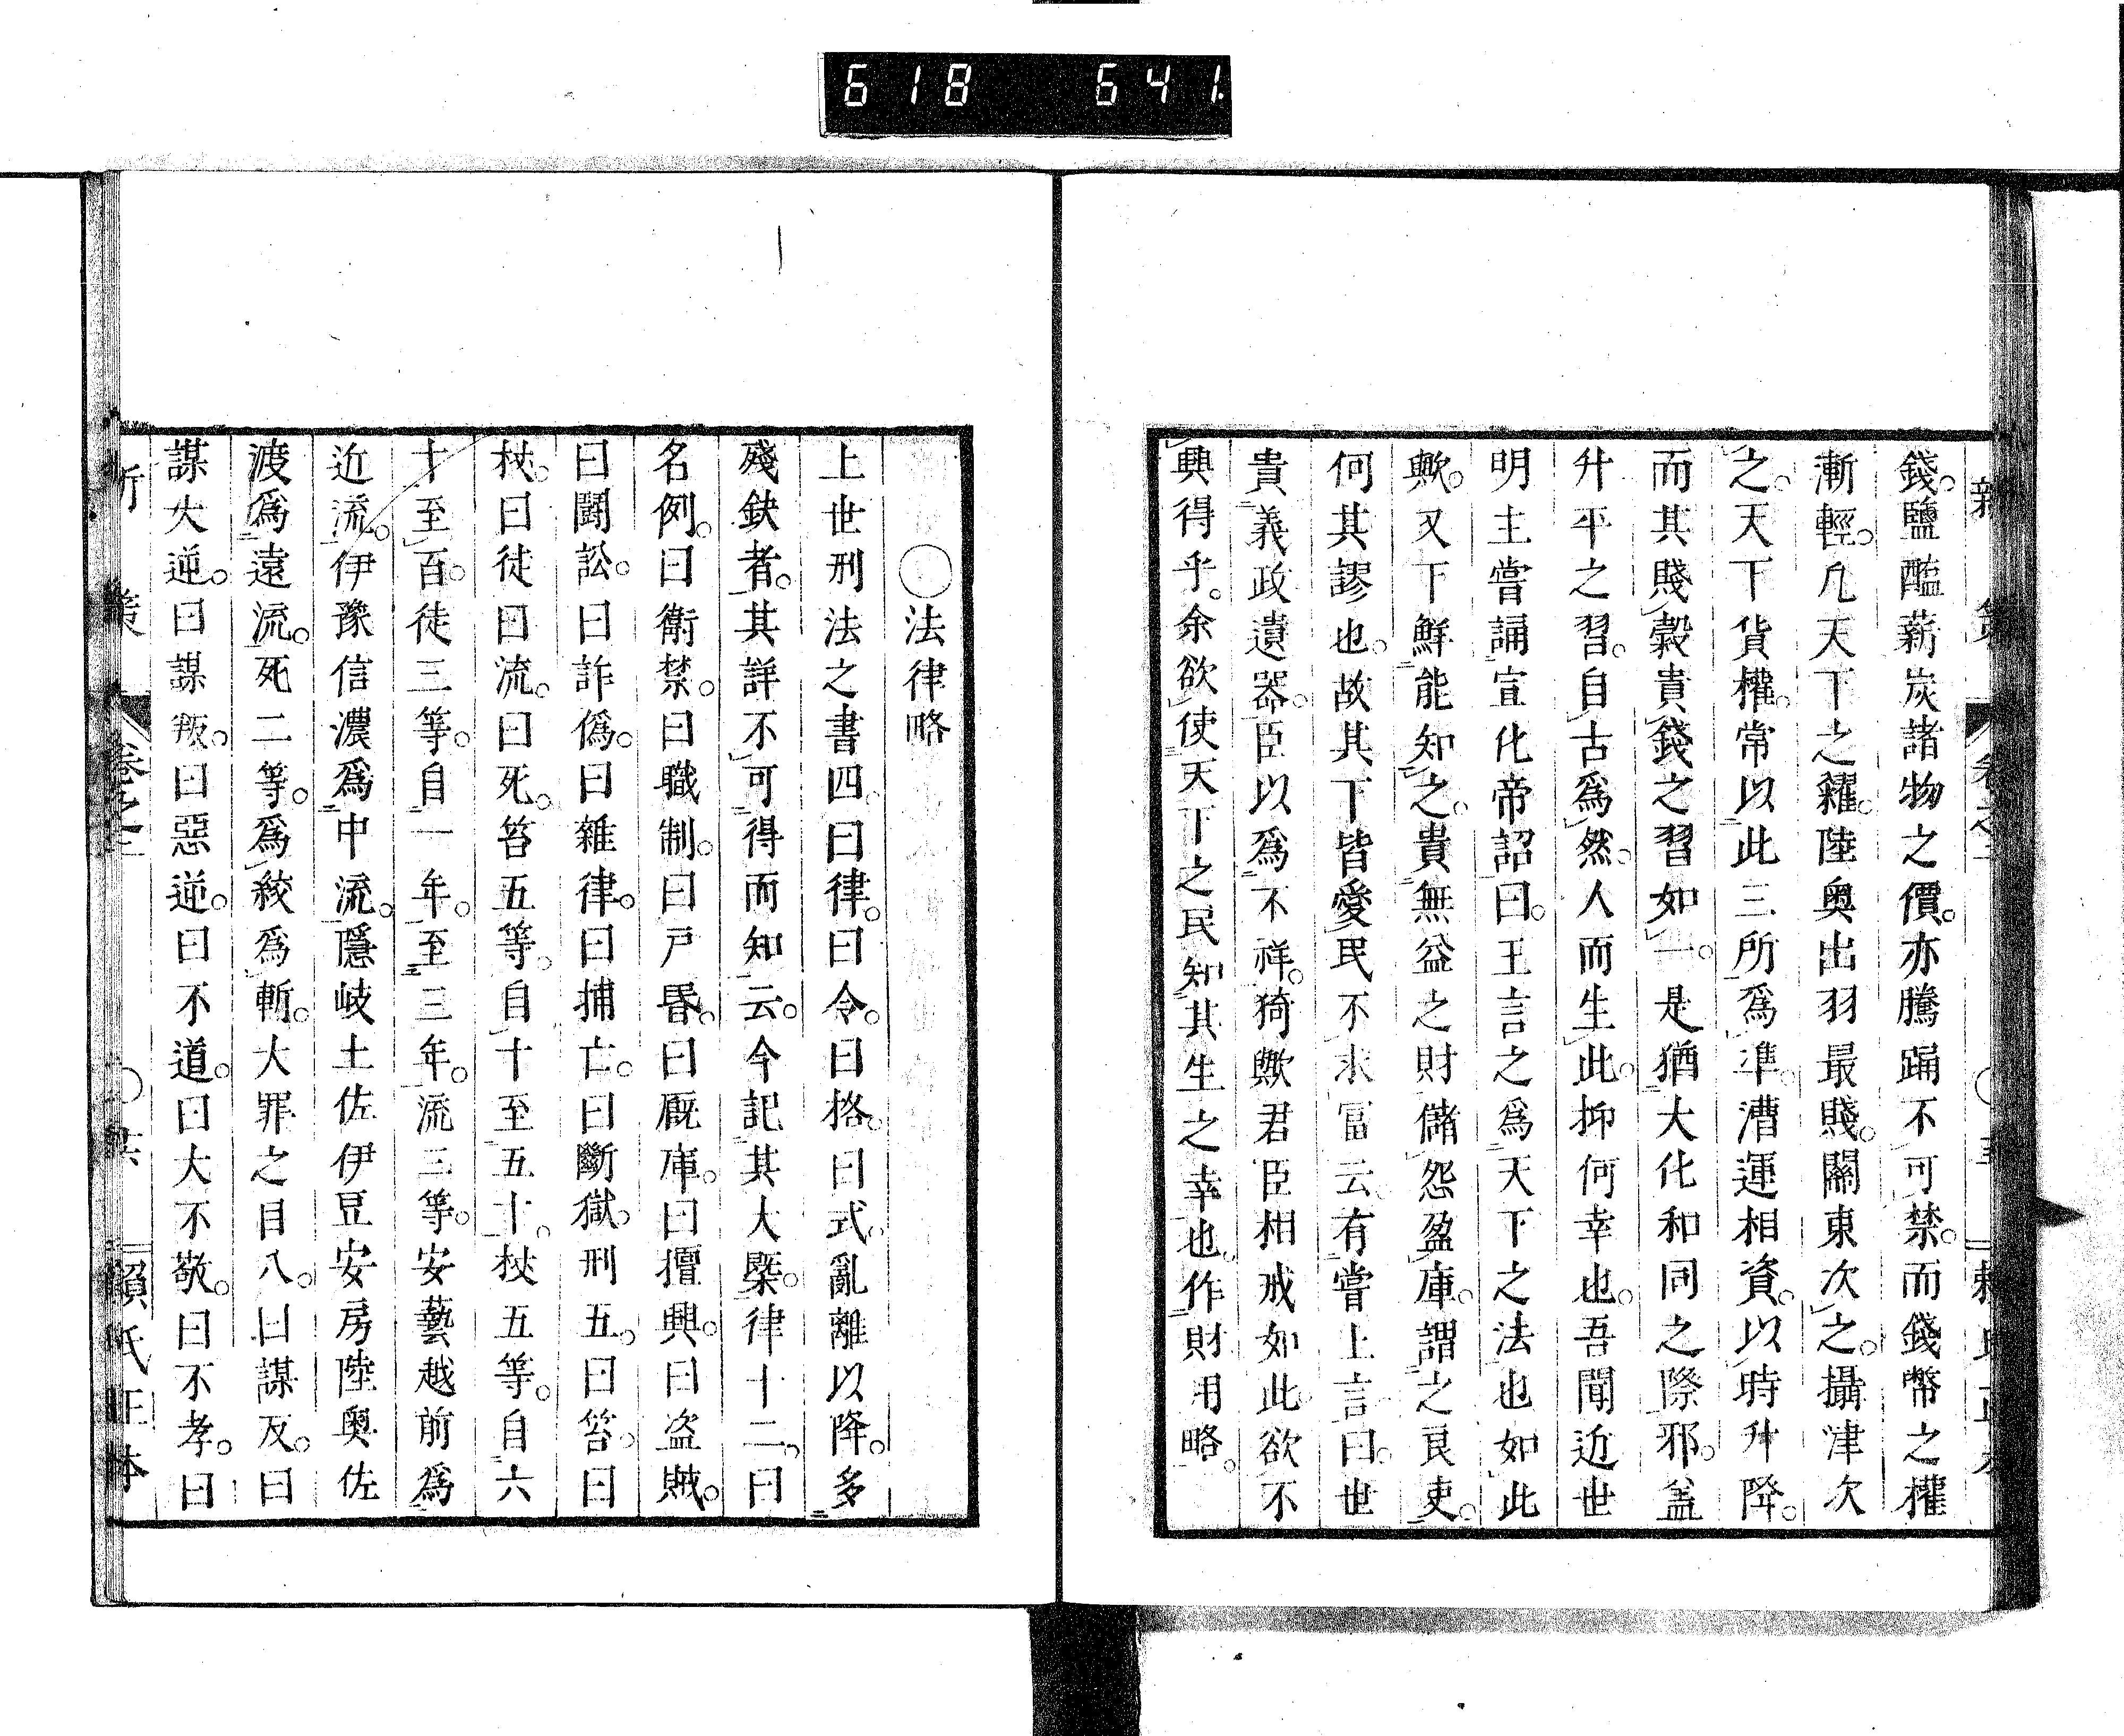 618 641.
錢。鹽醢薪炭諸物之價。亦騰踊不可禁。而錢幣之權
漸輕。凡天下之糴。陸奧出羽最賤。關東次之。攝津次
之。天下貨權。常以此三所爲準。漕運相資。以時升降。
而其賤穀貴錢之習如一。是猶大化和同之際邪。盖
升平之習。自古爲然。人而生此。抑何幸也。吾聞近世
明主嘗誦宣化帝詔曰。王言之爲天下之法也如此
歟。又下鮮能知之。貴無益之財儲。怨盈庫。謂之良吏。
何其謬也。故其下皆愛民不求冨云。有嘗上言曰。世
貴義政遺器。臣以爲不祥。猗歟君臣相戒如此欲不
興得乎。余欲使天下之民知其生之幸也。作財用略。
〇法律略
上世刑法之書四曰律。曰令。曰格。曰式。亂離以降。多
殘缺者。其詳不可得而知云。今記其大槩。律十二。曰
名例。曰衛禁。曰職制。曰戸婚。曰厩庫。曰擅興。曰盗賊。
曰鬪訟。曰詐僞。曰雜律。曰捕亡。曰斷獄。刑五。曰笞。曰
杖。曰徒曰流。曰死。笞五等。自十至五十。杖五等。自六
十至百。徒三等。自一年。至三年。流三等。安藝越前爲
近流。伊豫信濃爲中流。隱岐土佐伊豆安房陸奧佐
渡爲遠流。死二等。爲絞爲斬。大罪之目八。曰謀反。曰
謀大逆。曰謀叛。曰惡逆。曰不道。曰大不敬。曰不孝。曰
新策 卷之二 賴氏正本